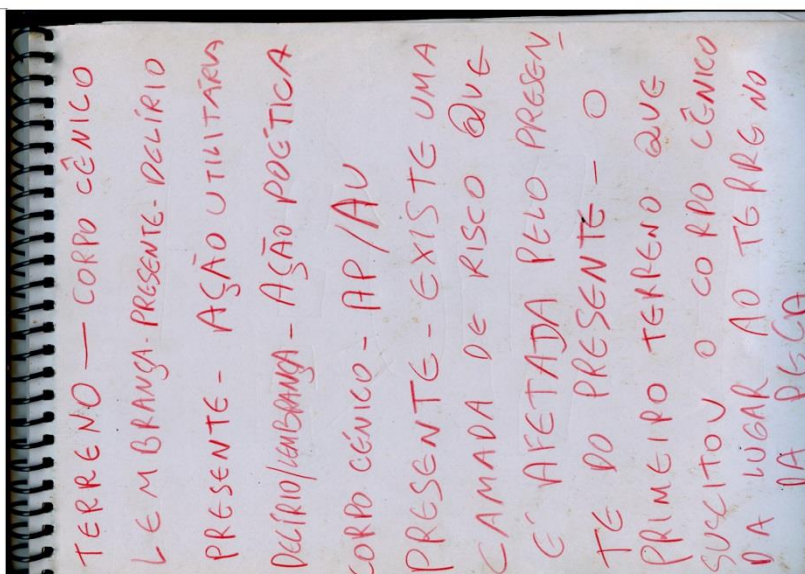 TERRENO — CORPO CÊNICO
LEMBRANÇA-PRESENTE-DELÍRIO
PRESENTE - AÇÃO UTILITÁRIA
DELÍRIO/LEMBRANÇA - AÇÃO POÉTICA
CORPO CÊNICO - AP/AU
PRESENTE - EXISTE UMA
CAMADA DE RISCO QUE
É AFETADA PELO PRESEN
TE DO PRESENTE - O
PRIMEIRO TERRENO QUE
SUSCITOU O CORPO CÊNICO
DA LUGAR AO TERRENO
DA PEÇA